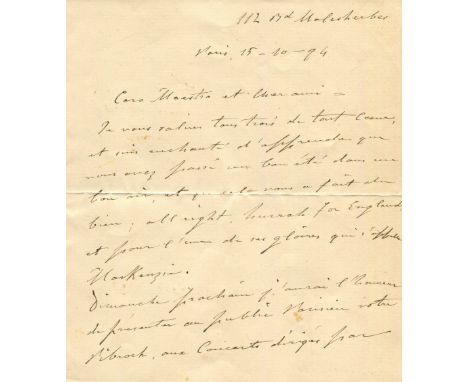 112 Bd Malesherbes
Paris, 15-10-94
Caro Maestro et cher ami -
Je vous salue tous trois de tout coeur,
et suis enchanté d'apprendre que
vous avez passé un bon été dans un
bon air, et que cela vous a fait du
bien; all right, hurrah for England
et pour l'une de ses gloires qui s'appelle
MacKenzie.
Dimanche prochain j'aurai l'honneur
de présenter au public Parisien votre
Pibroch, aux Concerts dirigés par